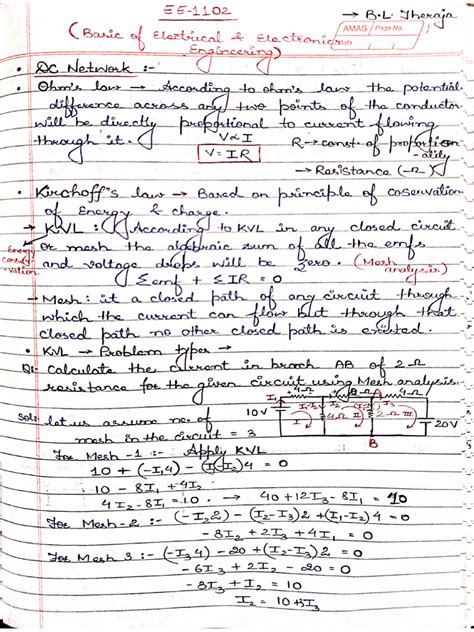 EE-1102
→ B.L. Theraja
(Basic of Electrical & Electronics
Engineering)
AMAS Page No.
Date
• DC Network :-
• Ohm's law → According to ohm's law the potential
difference across any two points of the conductor
will be directly proportional to current flowing
through it. V∝I R→ const. of proportion
-ality
V = IR
→ Resistance (Ω)
• Kirchoff's law → Based on principle of coservation
of Energy & charge.
→ KVL : According to KVL in any closed circuit
or mesh the algebraic sum of all the emfs
and voltage drops will be zero. (Mesh
analysis)
Energy
conser
-vation
Σemf + ΣIR = 0
→ Mesh : it a closed path of any circuit through
which the current can flow but through that
closed path no other closed path is existed.
• KVL → Problem type →
Q1 Calculate the current in branch AB of 2-Ω
resistance for the given circuit using Mesh analysis.
Sol: let us assume no. of
mesh in the circuit = 3
10V
20V
A
B
For Mesh -1 :- Apply KVL
10 + (-I₁4) - (I₁-I₂)4 = 0
10 - 8I₁ + 4I₂
4I₂ - 8I₁ = 10 . → 40 + 12I₃ - 8I₁ = 10
For Mesh-2 :- (-I₂2) - (I₂-I₃)2 + (I₁-I₂)4 = 0
-8I₂ + 2I₃ + 4I₁ = 0
For Mesh 3 :- (-I₃4) - 20 + (I₂-I₃)2 = 0
-6I₃ + 2I₂ - 20 = 0
-3I₃ + I₂ = 10
I₂ = 10 + 3I₃